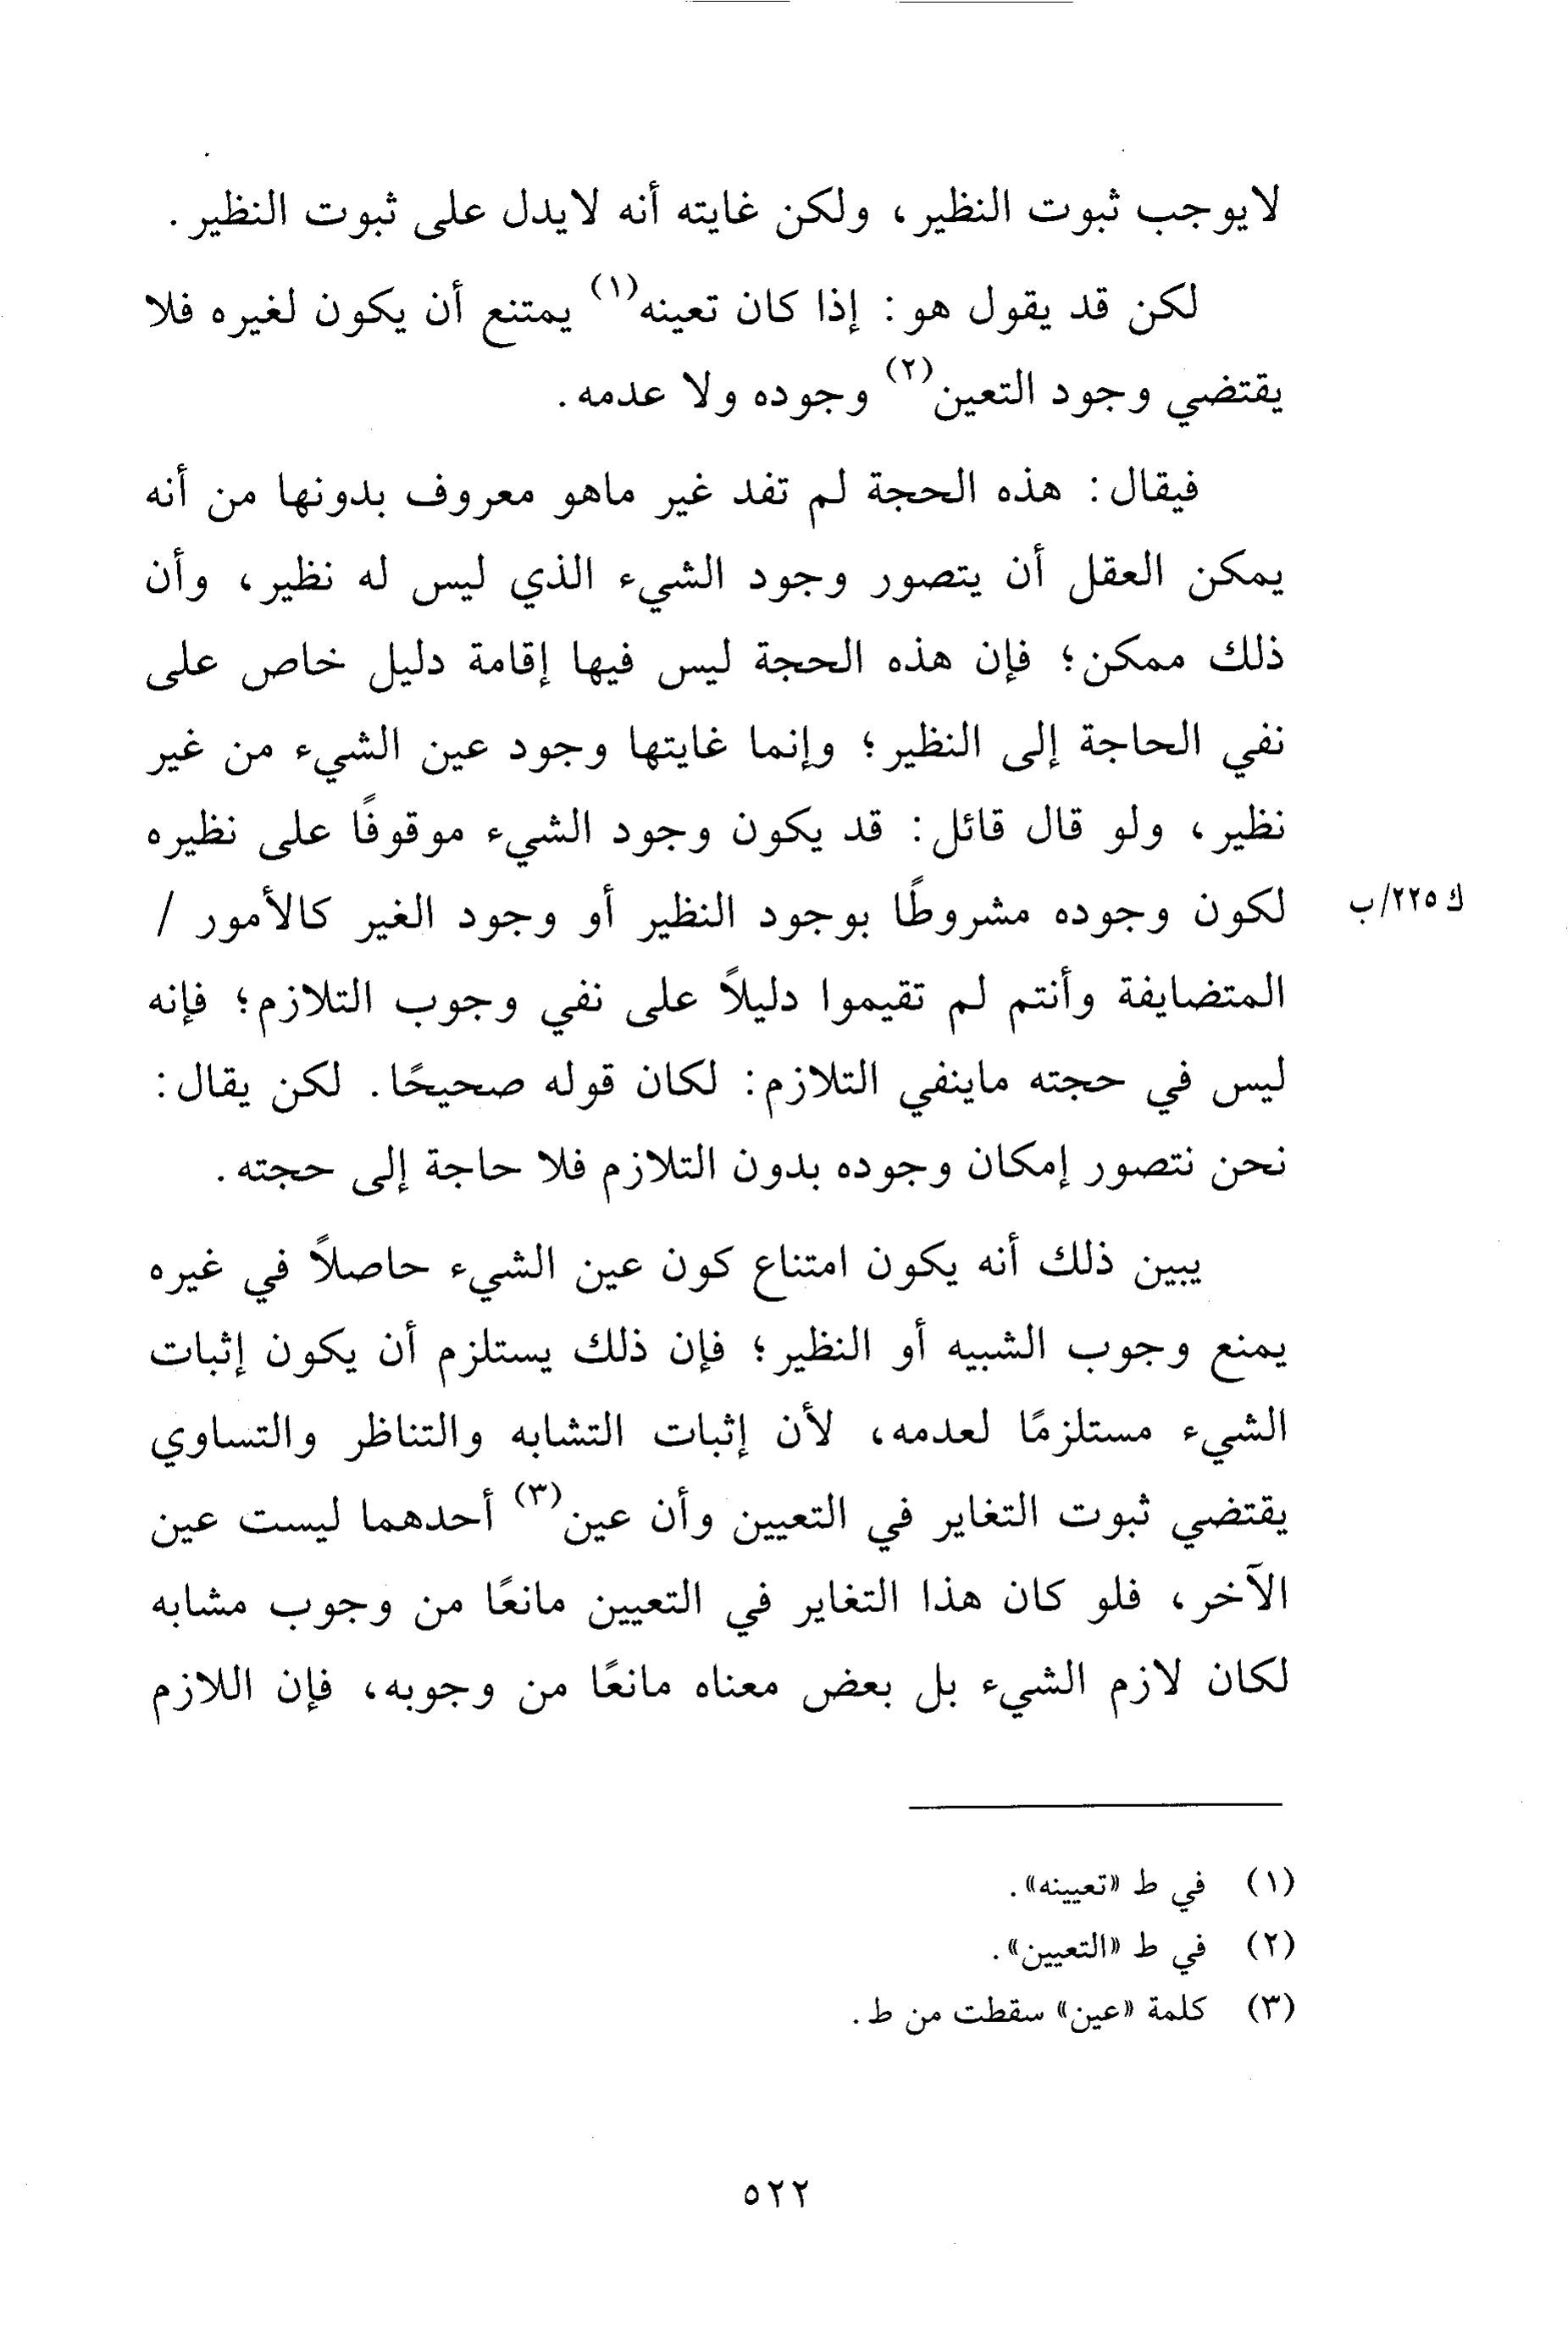 لايوجب ثبوت النظير، ولكن غايته أنه لايدل على ثبوت النظير.
لكن قد يقول هو: إذا كان تعينه(١) يمتنع أن يكون لغيره فلا
يقتضي وجود التعين(٢) وجوده ولا عدمه.
فيقال: هذه الحجة لم تفد غير ماهو معروف بدونها من أنه
يمكن العقل أن يتصور وجود الشيء الذي ليس له نظير، وأن
ذلك ممكن؛ فإن هذه الحجة ليس فيها إقامة دليل خاص على
نفي الحاجة إلى النظير؛ وإنما غايتها وجود عين الشيء من غير
نظير، ولو قال قائل: قد يكون وجود الشيء موقوفًا على نظيره
لكون وجوده مشروطًا بوجود النظير أو وجود الغير كالأمور /
ك ٢٢٥/ب
المتضايفة وأنتم لم تقيموا دليلاً على نفي وجوب التلازم؛ فإنه
ليس في حجته ماينفي التلازم: لكان قوله صحيحًا. لكن يقال:
نحن نتصور إمكان وجوده بدون التلازم فلا حاجة إلى حجته.
يبين ذلك أنه يكون امتناع كون عين الشيء حاصلاً في غيره
يمنع وجوب الشبيه أو النظير؛ فإن ذلك يستلزم أن يكون إثبات
الشيء مستلزمًا لعدمه، لأن إثبات التشابه والتناظر والتساوي
يقتضي ثبوت التغاير في التعيين وأن عين(٣) أحدهما ليست عين
الآخر، فلو كان هذا التغاير في التعيين مانعًا من وجوب مشابه
لكان لازم الشيء بل بعض معناه مانعًا من وجوبه، فإن اللازم
(١) في ط «تعيينه».
(٢) في ط «التعيين».
(٣) كلمة «عين» سقطت من ط.
٥٢٢